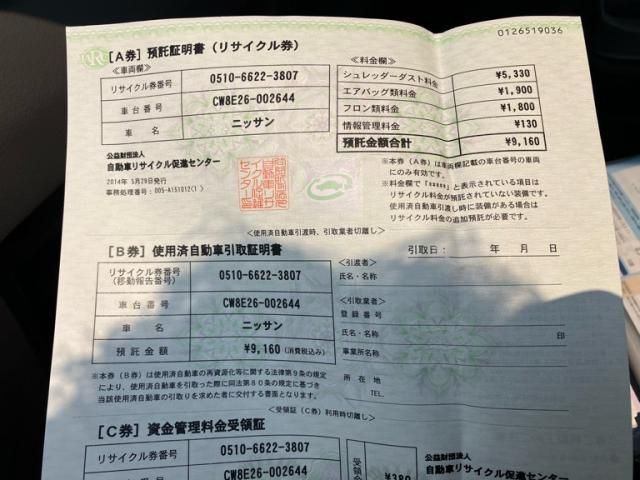 0126519036
[A券] 預託証明書（リサイクル券）
≪車両欄≫
リサイクル券番号 0510-6622-3807
車台番号 CW8E26-002644
車名 ニッサン
公益財団法人
自動車リサイクル促進センター
2014年 5月29日発行
事務処理番号：005-A151012C1〉
≪料金欄≫
シュレッダーダスト料金 ¥5,330
エアバッグ類料金 ¥1,900
フロン類料金 ¥1,800
情報管理料金 ¥130
預託金額合計 ¥9,160
※本券（A券）は車両欄記載の車台番号の車両
にのみ有効です。
※料金欄で「*****」と表示されている項目は
リサイクル料金が預託されていない装備です。
使用済自動車引渡し時に装備がある場合は
リサイクル料金の追加預託が必要です。
<使用済自動車引渡時、引取業者切離し>
[B券] 使用済自動車引取証明書
引取日： 年 月 日
リサイクル券番号
(移動報告番号) 0510-6622-3807
車台番号 CW8E26-002644
車名 ニッサン
預託金額 ¥9,160 (消費税込み)
※本券（B券）は使用済自動車の再資源化等に関する法律第9条の規定
により、使用済自動車を引取った際に同法第80条の規定に基づき
当該使用済自動車の引取りを求めた者に交付する書面となります。
≪引渡者≫
氏名・名称
≪引取業者≫
登録番号
氏名・名称 印
事業所名称
所在地
TEL.
<受領証（C券）利用時切離し>
[C券] 資金管理料金受領証
リサイクル券番号 0510-6622-3807
車台番号 CW8E26-002644
受領金 ¥380
公益財団法人
自動車リサイクル促進センター